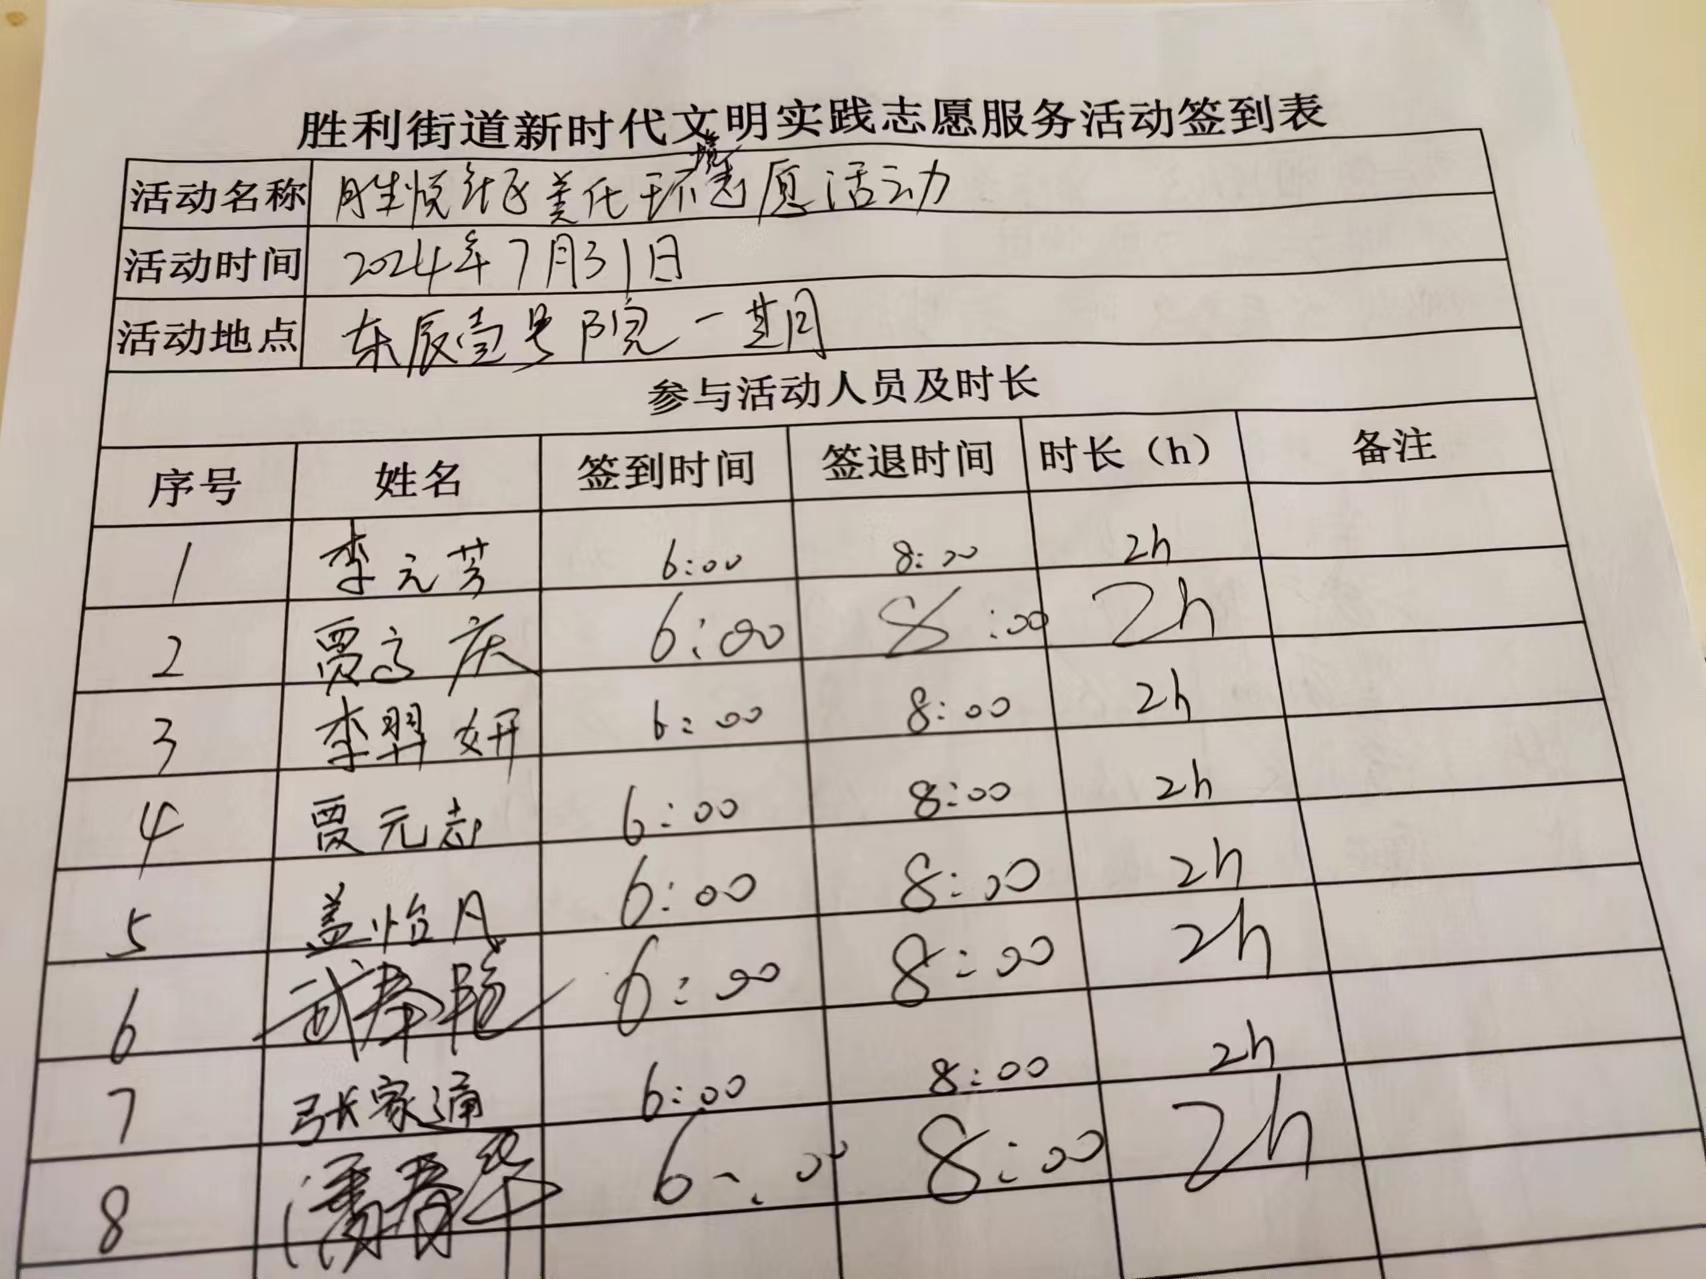 胜利街道新时代文明实践志愿服务活动签到表
活动名称 胜悦社区美化环境志愿活动
活动时间 2024年7月31日
活动地点 东辰壹号院一楚门
参与活动人员及时长
序号 姓名 签到时间 签退时间 时长（h） 备注
1 李元芳 6:00 8:00 2h
2 贾高庆 6:00 8:00 2h
3 李羿妍 6:00 8:00 2h
4 贾元志 6:00 8:00 2h
5 盖怡凡 6:00 8:00 2h
6 武春艳 6:00 8:00 2h
7 张家通 6:00 8:00 2h
8 潘春华 6:00 8:00 2h